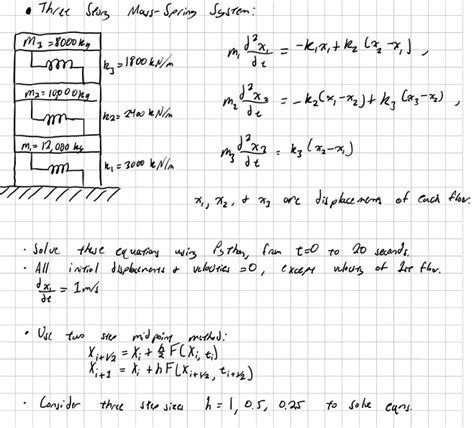 • Three Story Mass-Spring System:
m₃ = 8000 kg
k₃ = 1800 kN/m
m₂ = 10000 kg
k₂ = 2400 kN/m
m₁ = 12,000 kg
k₁ = 3000 kN/m
m₁ d²x₁/dt = -k₁x₁ + k₂(x₂ - x₁) ,
m₂ d²x₂/dt = -k₂(x₁ - x₂) + k₃(x₃ - x₂) ,
m₃ d²x₃/dt = k₃(x₂ - x₁)
x₁, x₂, & x₃ are displacements of each floor.
• Solve these equations using Python, from t=0 to 20 seconds.
• All initial displacements & velocities = 0, except velocity of 1st floor.
dx₁/dt = 1 m/s
• Use two step midpoint method:
Xᵢ₊₁/₂ = Xᵢ + h/2 F(Xᵢ, tᵢ)
Xᵢ₊₁ = Xᵢ + h F(Xᵢ₊₁/₂, tᵢ₊₁/₂)
• Consider three step sizes h = 1, 0.5, 0.25 to solve eqns.